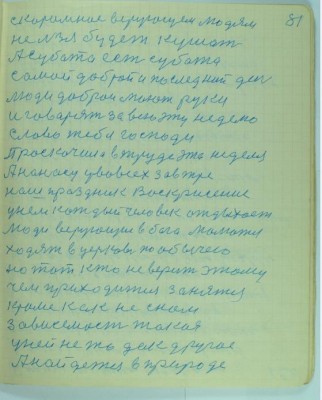 81
скоромное верующем людям
не лзя будет кушат
А субата ест субата
самой доброй и последний ден
люди доброи моют руки
и говарят за всю эту неделю
слово тебя господи
Проскочила в труде эта неделя
А у во всех завтре
наш праздник Воскрисение
унем каждый человек отдыхает
люди верующии в бога
ходят в церков по обычею
но тот кто не верит этому
чем приходится занятся
кроме как не сном
Зависемост такая
у ней не то дак другое
А найдетея в природе